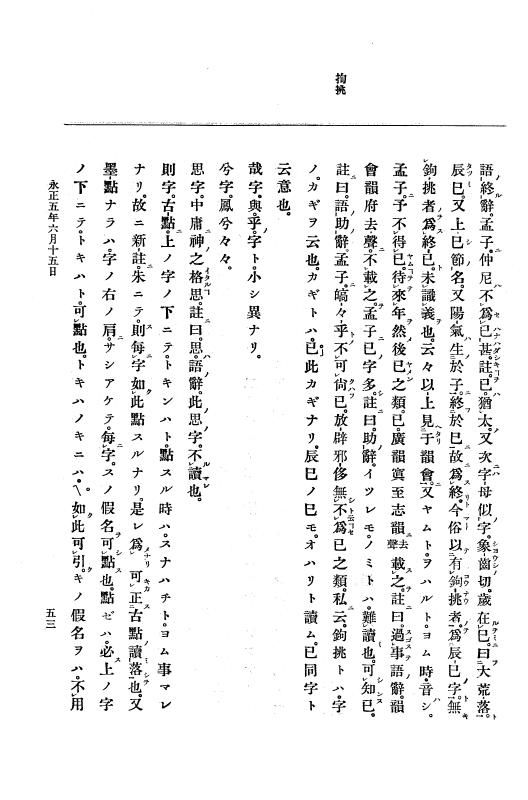 鉤挑
語終辭。孟子。仲尼不爲已甚。註。已猶太。又次字母似字。象齒切。歲在巳。曰大荒落。
辰巳。又上巳節名。又陽氣生於子。終於巳。故爲終。今俗以有鉤挑者。爲辰巳字。無
鉤挑者爲終已。未識義也。云々以上見于韻會。又ヤムト。ヲハルト。ヨム時。音シ。
孟子。予不得已。待來年然後已之類。已。廣韻寘至志韻去聲載之。註曰。過事語辭。韻
會韻府去聲。不載之。孟子已字多。註曰。助辭。イツレモ。ノミトハ。難讀也。可知已。
註曰。語助辭。孟子。皜々乎不可尙已。放辟邪侈。無不爲已之類。私云。鉤挑トハ。字
ノ。カギヲ云也。カギトハ。已此カギナリ。辰巳ノ巳モ。オハリト讀ム。已同字ト
云意也。
哉字。與乎字ト。小シ異ナリ。
兮字。鳳兮々々。
思字。中庸。神之格思。註曰。思語辭。此思字。不讀也。
則字。古點。上ノ字ノ下ニテ。トキンハト。點スル時ハ。スナハチト。ヨム事マレ
ナリ。故ニ新註。朱ニテ。則毎字如此點スルナリ。是レ爲可正古點讀落也。又
墨點ナラハ。字ノ右ノ肩。サシアケテ。毎字。スノ假名可點也。點ゼハ。必上ノ字
ノ下ニテ。トキハト。可點也。トキハノキニハ。〵。如此可引。キノ假名ヲハ。不用
永正五年六月十五日
五三